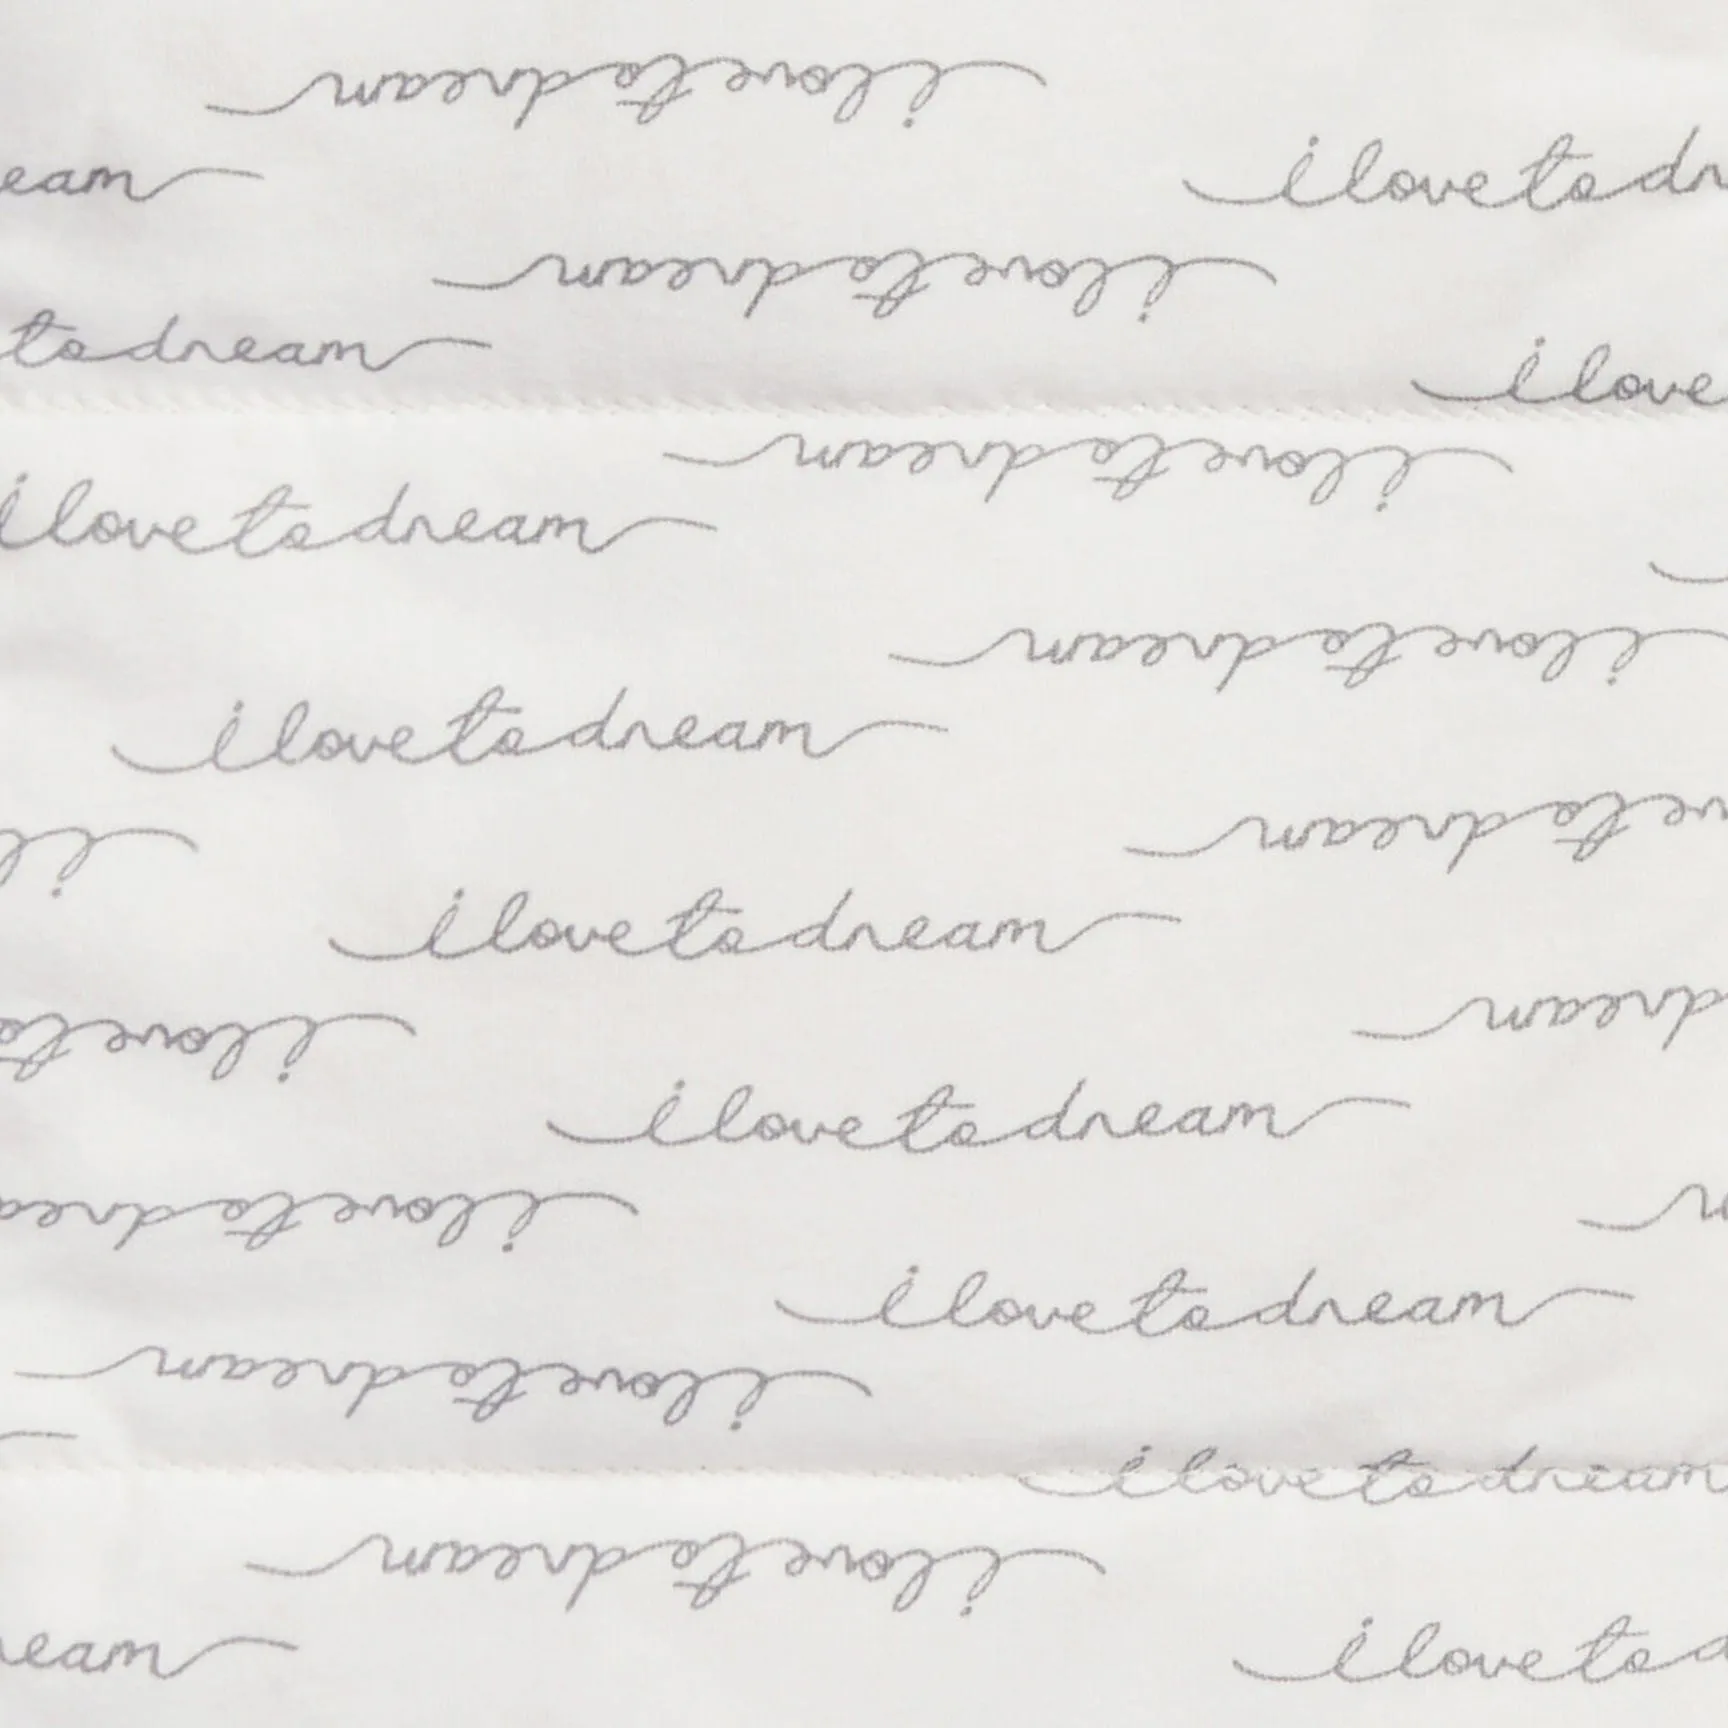 i love to dream
eam
i love to dr
i love to dream
to dream
i love
i love to dream
i love to dream
i love to dream
i love to dream
ve to dream
i l
i love to dream
dream
i love to
i love to dream
m
i love to drea
i love to dream
i love to dream
i love to dream
i love to dream
eam
i love to d